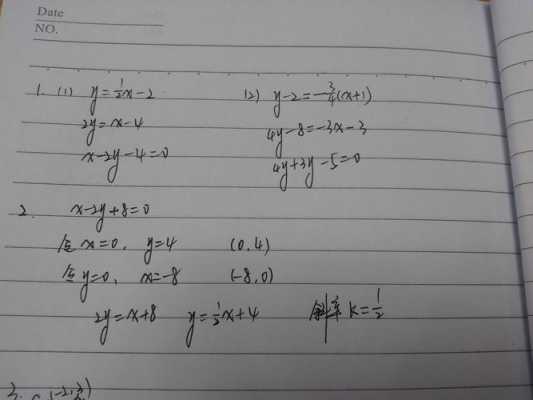 Date
NO.
1. (1) y=½x-2 (2) y-2=-¾(x+1)
2y=x-4 4y-8=-3x-3
x-2y-4=0 4y+3y-5=0
2. x-2y+8=0
令x=0, y=4 (0,4)
令y=0, x=-8 (-8,0)
2y=x+8 y=½x+4 斜率k=½